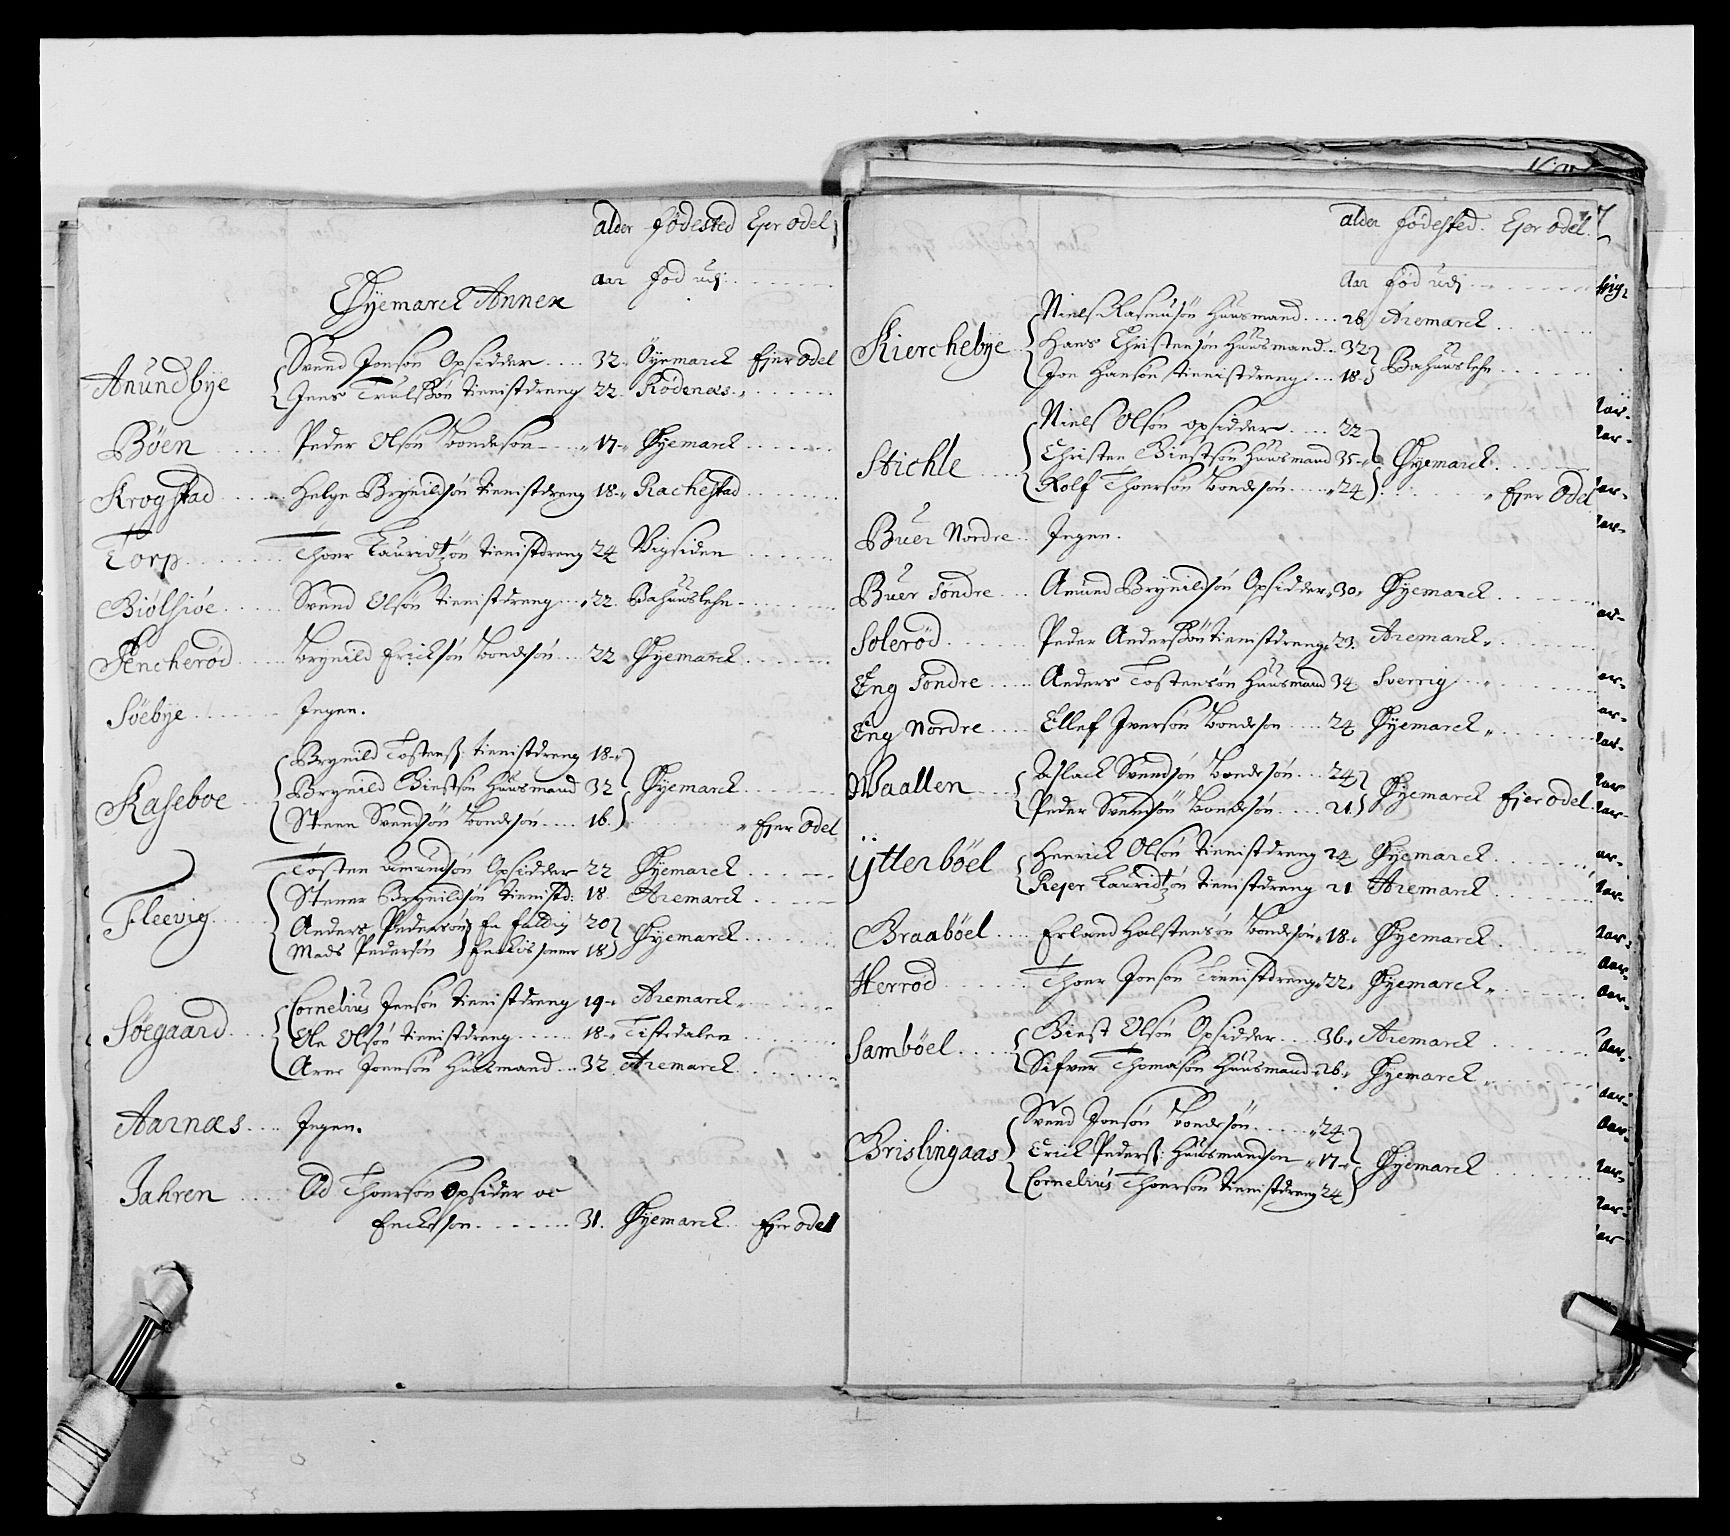 alder fødested Ejer odel
aar fød udj
Øyemarck Annex
Anundbye
Svend Jonsøn Opsidder 32 Øyemarck Ejer Odel
Jens Trulssøn tienistdreng 22 Rødenæs
Bøen Peder Olsøn bondesøn 17 Øyemarck
Krogstad Helge Brynildsøn tienistdreng 18 Rachestad
Torp Thoer Lauridtzøn tienistdreng 24 Vigsiden
Biølsiøe Svend Olsøn tienistdreng 22 Bahuuslehn
Brynild Ericksøn bondesøn 22 Øyemarck
Søebye Ingen.
Brynild Tostenss: tienistdreng 18
Kaseboe Brynild Giestsøn Huusmand 32 Øyemarck
Steen Svendsøn bondesøn 16 Ejer Odel
Tosten Amundsøn Opsidder 22 Øyemarck
Stener Brynildsøn tienistd: 18 Aremarck
Fleevig
Anders Pedersøn En faldig 20 Øyemarck
Mads Pedersøn Enckis sønner 18
Cornelius Jensøn tienistdreng 19 Aremarck
Søegaard Ole Olsøn tienistdreng 18 Tistedalen
Arne Joensøn Huusmand 32 Aremarck
Aarnæs Ingen.
Jahren Od Thoersøn Opsider oc
Enckesøn 31 Øyemarck Ejer odel
alder fødested. Ejer odel.
Aar fød udj
Niels Rasmusøn Huusmand 26 Aremarck
Kierchebye Hans Christensøn Huusmand 32 Bahuuslehn
Jon Hansøn tienistdreng 18
Niels Olsøn opsidder 22
Stichle Christen Giestsøn Huusmand 35 Øyemarck
Rolf Thoersøn bondesøn 24 Ejer Odel
Buer Nordre Ingen.
Buer Søndre Amund Brynildsøn Opsidder 30 Øyemarck
Solerød Peder Anderssøn tienistdreng 23 Aremarck
Eng Søndre Anders Tostensøn Huusmand 34 Sverrig
Eng Nordre Ellef Iversøn bondesøn 24 Øyemarck
Waallen Aslack Svendsøn bondesøn 24 Øyemarck Ejer odel
Peder Svendsøn bondesøn 21
Ÿtterbøel Henrick Olsøn tienistdreng 24 Øyemarck
Rejer Lauridtzøn tienistdreng 21 Aremarck
Braabøel Erland Halstensøn bondesøn 18 Øyemarck
Herrød Thoer Jonsøn tienistdreng 22 Øyemarck
Sambøel Giest Olsøn Opsidder 36 Aremarck
Sifver Thomasøn Huusmand 26 Øyemarck
Svend Jonsøn bondesøn 24
Brislingaas Erick Pederss: Huusmandsøn 17 Øyemarck
Cornelius Thoersøn tienistdreng 24